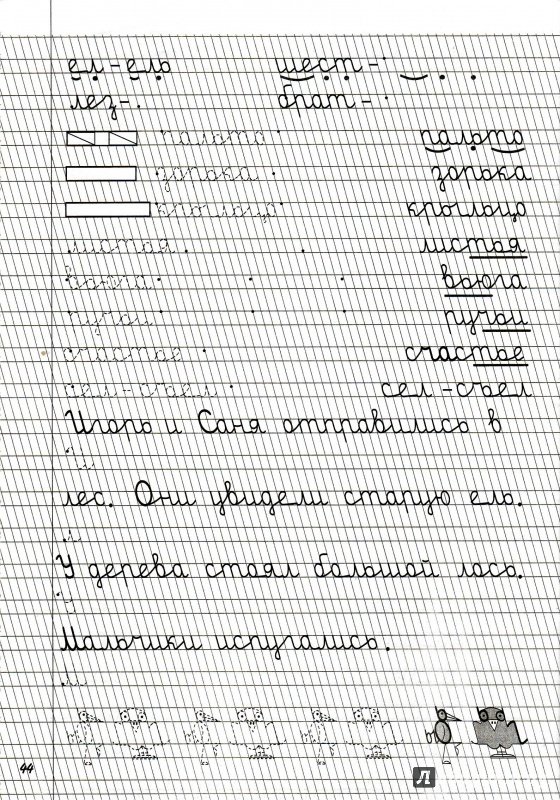 ел – ель шест –
лез – брат –
пальто пальто
зорька зорька
крыльцо крыльцо
листья листья
вьюга вьюга
ручьи ручьи
счастье счастье
сел – съел сел – съел
Игорь и Саня отправились в
И
лес. Они увидели старую ель.
л
У дерева стоял большой лось.
У
Мальчики испугались.
М
44